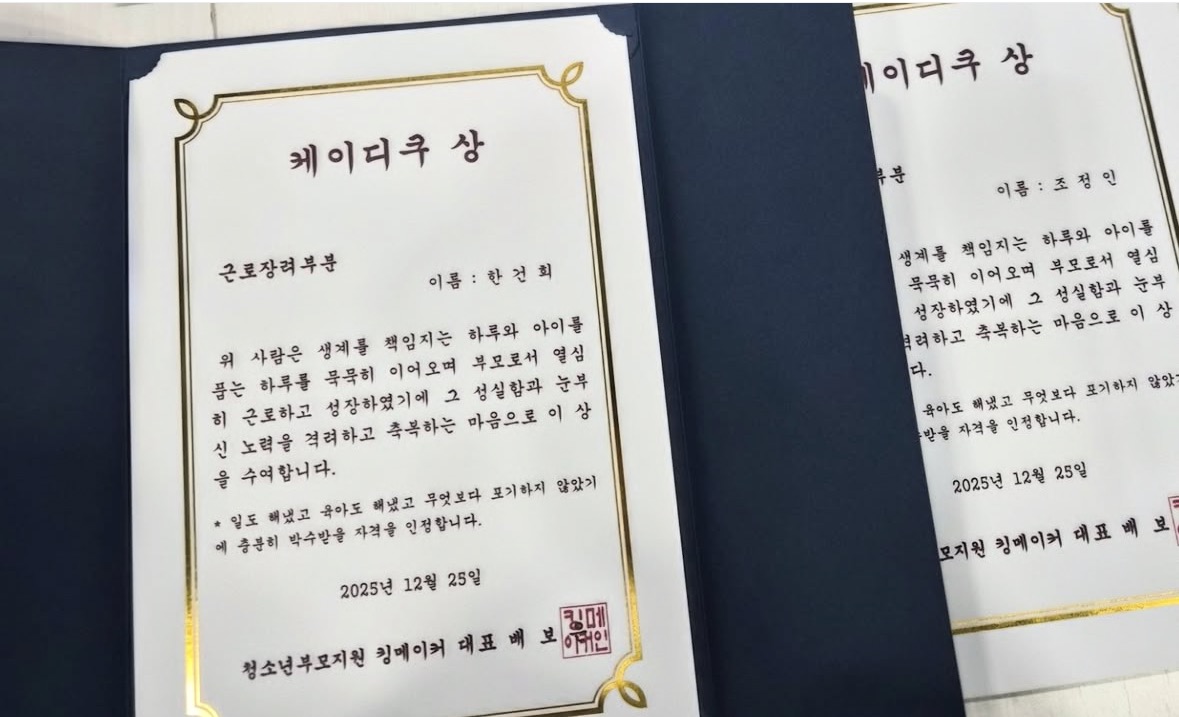 케이디쿠 상
근로장려부분
이름 : 한 건 희
위 사람은 생계를 책임지는 하루와 아이를
품는 하루를 묵묵히 이어오며 부모로서 열심
히 근로하고 성장하였기에 그 성실함과 눈부
신 노력을 격려하고 축복하는 마음으로 이 상
을 수여합니다.
* 일도 해냈고 육아도 해냈고 무엇보다 포기하지 않았기
에 충분히 박수받을 자격을 인정합니다.
2025년 12월 25일
청소년부모지원 킹메이커 대표 배 보
킹메
이커인
이디쿠 상
부분
이름 : 조 정 인
생계를 책임지는 하루와 아이를
묵묵히 이어오며 부모로서 열심
성장하였기에 그 성실함과 눈부
격려하고 축복하는 마음으로 이 상
다.
육아도 해냈고 무엇보다 포기하지 않았기
받을 자격을 인정합니다.
2025년 12월 25일
모지원 킹메이커 대표 배 보